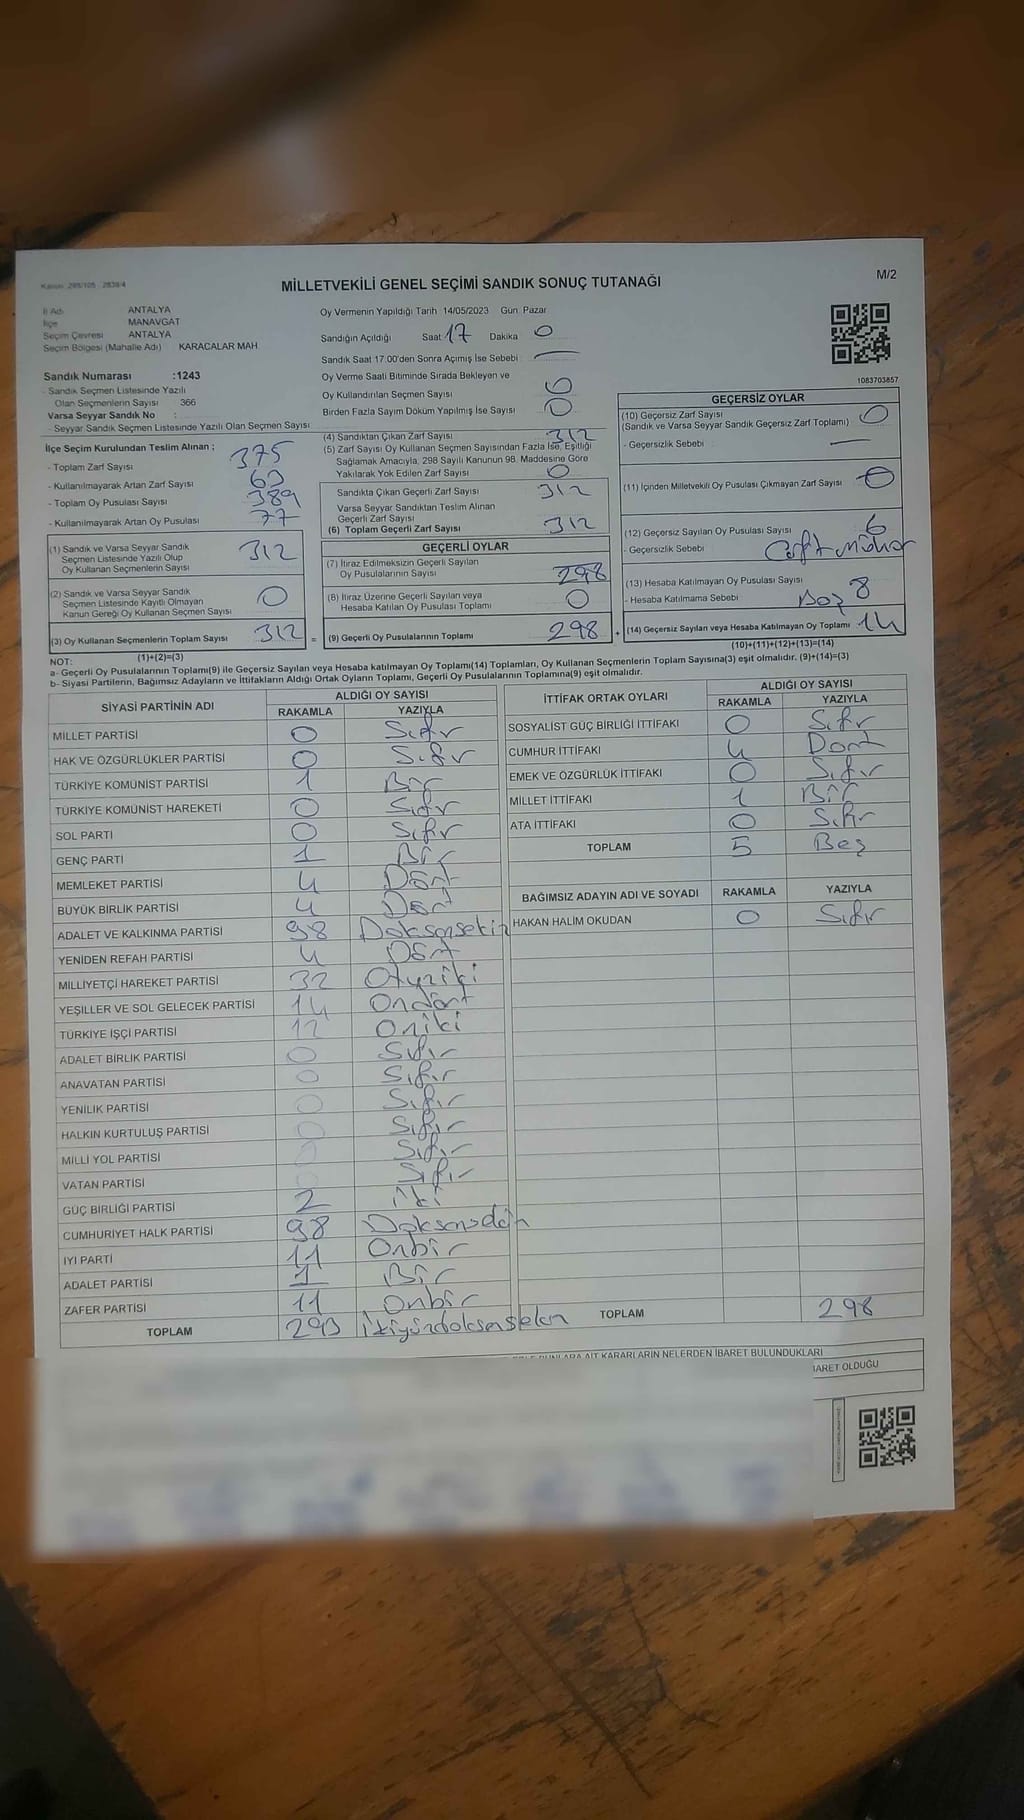 Kanun: 298/105 - 2839/4
MİLLETVEKİLİ GENEL SEÇİMİ SANDIK SONUÇ TUTANAĞI
M/2
İl Adı ANTALYA
İlçe MANAVGAT
Seçim Çevresi ANTALYA
Seçim Bölgesi (Mahalle Adı) KARACALAR MAH.
Sandık Numarası :1243
- Sandık Seçmen Listesinde Yazılı
Olan Seçmenlerin Sayısı 366
Varsa Seyyar Sandık No :
- Seyyar Sandık Seçmen Listesinde Yazılı Olan Seçmen Sayısı
Oy Vermenin Yapıldığı Tarih 14/05/2023 Gün: Pazar
Sandığın Açıldığı Saat 17 Dakika 0
Sandık Saat 17:00'den Sonra Açımış İse Sebebi —
Oy Verme Saati Bitiminde Sırada Bekleyen ve
Oy Kullandırılan Seçmen Sayısı 0
Birden Fazla Sayım Döküm Yapılmış İse Sayısı 0
1083703857
İlçe Seçim Kurulundan Teslim Alınan ;
- Toplam Zarf Sayısı 375
- Kullanılmayarak Artan Zarf Sayısı 63
- Toplam Oy Pusulası Sayısı 389
- Kullanılmayarak Artan Oy Pusulası 77
(1) Sandık ve Varsa Seyyar Sandık
Seçmen Listesinde Yazılı Olup
Oy Kullanan Seçmenlerin Sayısı 312
(2) Sandık ve Varsa Seyyar Sandık
Seçmen Listesinde Kayıtlı Olmayan
Kanun Gereği Oy Kullanan Seçmen Sayısı 0
(3) Oy Kullanan Seçmenlerin Toplam Sayısı 312 =
(1)+(2)=(3)
(4) Sandıktan Çıkan Zarf Sayısı 312
(5) Zarf Sayısı Oy Kullanan Seçmen Sayısından Fazla İse, Eşitliği
Sağlamak Amacıyla, 298 Sayılı Kanunun 98. Maddesine Göre
Yakılarak Yok Edilen Zarf Sayısı 0
Sandıkta Çıkan Geçerli Zarf Sayısı 312
Varsa Seyyar Sandıktan Teslim Alınan
Geçerli Zarf Sayısı
(6) Toplam Geçerli Zarf Sayısı 312
GEÇERLİ OYLAR
(7) İtiraz Edilmeksizin Geçerli Sayılan
Oy Pusulalarının Sayısı 298
(8) İtiraz Üzerine Geçerli Sayılan veya
Hesaba Katılan Oy Pusulası Toplamı 0
(9) Geçerli Oy Pusulalarının Toplamı 298 +
GEÇERSİZ OYLAR
(10) Geçersiz Zarf Sayısı 0
(Sandık ve Varsa Seyyar Sandık Geçersiz Zarf Toplamı)
- Geçersizlik Sebebi —
(11) İçinden Milletvekili Oy Pusulası Çıkmayan Zarf Sayısı 0
(12) Geçersiz Sayılan Oy Pusulası Sayısı 6
- Geçersizlik Sebebi Çift Mühür
(13) Hesaba Katılmayan Oy Pusulası Sayısı 8
- Hesaba Katılmama Sebebi Boş
(14) Geçersiz Sayılan veya Hesaba Katılmayan Oy Toplamı 14
(10)+(11)+(12)+(13)=(14)
NOT:
a- Geçerli Oy Pusulalarının Toplamı(9) ile Geçersiz Sayılan veya Hesaba katılmayan Oy Toplamı(14) Toplamları, Oy Kullanan Seçmenlerin Toplam Sayısına(3) eşit olmalıdır. (9)+(14)=(3)
b- Siyasi Partilerin, Bağımsız Adayların ve İttifakların Aldığı Ortak Oyların Toplamı, Geçerli Oy Pusulalarının Toplamına(9) eşit olmalıdır.
SİYASİ PARTİNİN ADI ALDIĞI OY SAYISI
RAKAMLA YAZIYLA
MİLLET PARTİSİ 0 Sıfır
HAK VE ÖZGÜRLÜKLER PARTİSİ 0 Sıfır
TÜRKİYE KOMÜNİST PARTİSİ 1 Bir
TÜRKİYE KOMÜNİST HAREKETİ 0 Sıfır
SOL PARTİ 0 Sıfır
GENÇ PARTİ 1 Bir
MEMLEKET PARTİSİ 4 Dört
BÜYÜK BİRLİK PARTİSİ 4 Dört
ADALET VE KALKINMA PARTİSİ 98 Doksansekiz
YENİDEN REFAH PARTİSİ 4 Dört
MİLLİYETÇİ HAREKET PARTİSİ 32 Otuziki
YEŞİLLER VE SOL GELECEK PARTİSİ 14 Ondört
TÜRKİYE İŞÇİ PARTİSİ 12 Oniki
ADALET BİRLİK PARTİSİ 0 Sıfır
ANAVATAN PARTİSİ 0 Sıfır
YENİLİK PARTİSİ 0 Sıfır
HALKIN KURTULUŞ PARTİSİ 0 Sıfır
MİLLİ YOL PARTİSİ 0 Sıfır
VATAN PARTİSİ 0 Sıfır
GÜÇ BİRLİĞİ PARTİSİ 2 İki
CUMHURİYET HALK PARTİSİ 98
İYİ PARTİ 11 Onbir
ADALET PARTİSİ 1 Bir
ZAFER PARTİSİ 11 Onbir
TOPLAM 293
İTTİFAK ORTAK OYLARI ALDIĞI OY SAYISI
RAKAMLA YAZIYLA
SOSYALİST GÜÇ BİRLİĞİ İTTİFAKI 0 Sıfır
CUMHUR İTTİFAKI 4 Dört
EMEK VE ÖZGÜRLÜK İTTİFAKI 0 Sıfır
MİLLET İTTİFAKI 1 Bir
ATA İTTİFAKI 0 Sıfır
TOPLAM 5 Beş
BAĞIMSIZ ADAYIN ADI VE SOYADI RAKAMLA YAZIYLA
HAKAN HALİM OKUDAN 0 Sıfır
TOPLAM 298
AİT KARARLARIN NELERDEN İBARET BULUNDUKLARI
BARET OLDUĞU